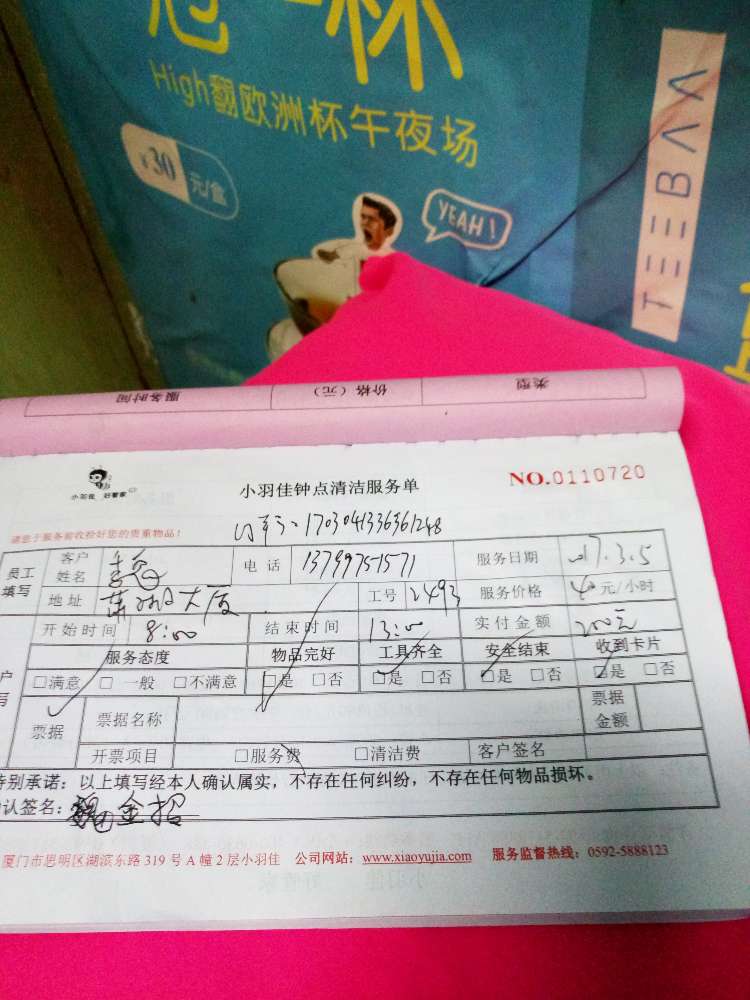 High翻欧洲杯午夜场
¥30元/盒
YEAH!
TEEBAA
服务时间 价格（元） 类型
小羽佳 好管家
小羽佳钟点清洁服务单 NO.0110720
请您于服务前收捡好您的贵重物品！
1703041336361248
员工填写 客户姓名 电话 13799751571 服务日期 2017.3.5
地址 大厦 工号 2493 服务价格 40元/小时
开始时间 8:00 结束时间 13:00 实付金额 200元
服务态度 物品完好 工具齐全 安全结束 收到卡片
□满意 □一般 □不满意 □是 □否 □是 □否 □是 □否 □是 □否
票据 票据名称 票据金额
开票项目 □服务费 □清洁费 客户签名
特别承诺：以上填写经本人确认属实，不存在任何纠纷，不存在任何物品损坏。
确认签名：魏金招
厦门市思明区湖滨东路319号A幢2层小羽佳 公司网站：www.xiaoyujia.com 服务监督热线：0592-5888123